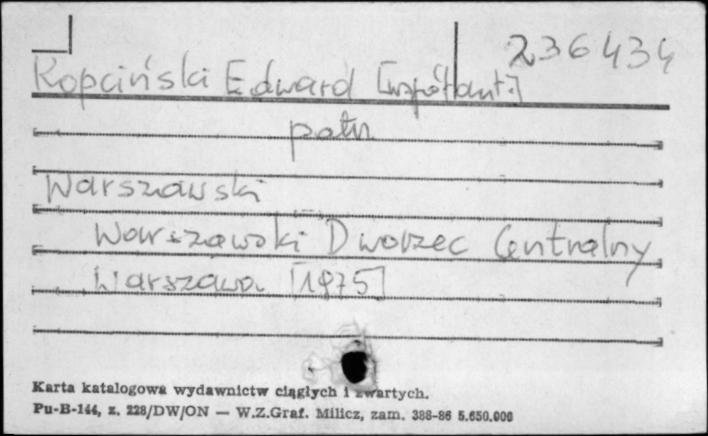 236434
Kopciński Edward [współaut.]
patrz
Warszawski
Warszawski Dworzec Centralny
Warszawa [1975]
Karta katalogowa wydawnictw ciągłych i zwartych.
Pu-B-144, z. 228/DW/ON — W.Z.Graf. Milicz, zam. 388-86 5.650.000